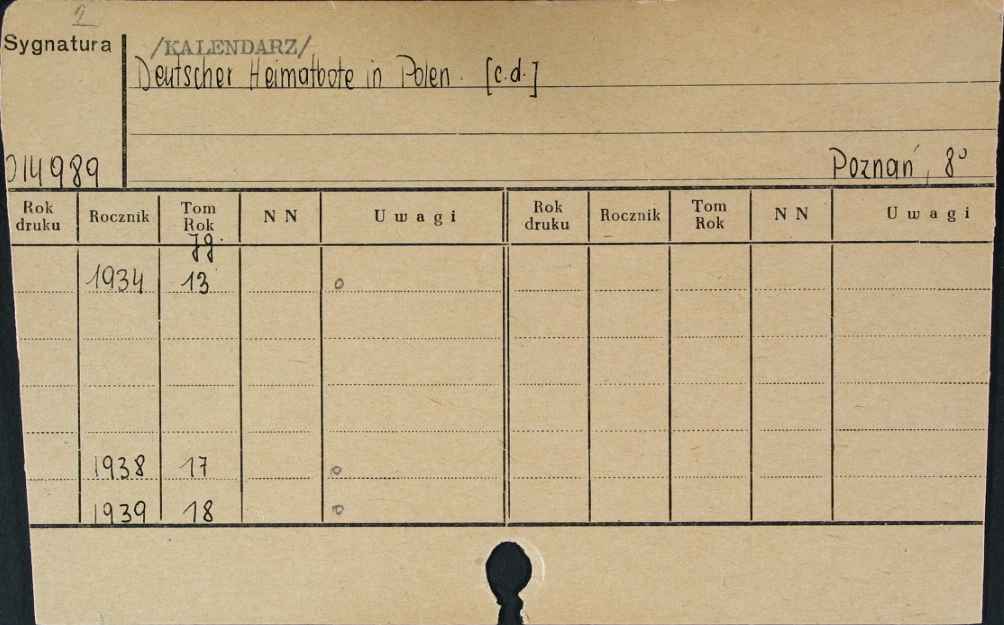 2
Sygnatura
/KALENDARZ/
Deutscher Heimatbote in Polen. [c.d.]
014989
Poznań, 8°
Rok druku Rocznik Tom Rok N N Uwagi Rok druku Rocznik Tom Rok N N Uwagi
Jg.
1934 13 o
1938 17 o
1939 18 o